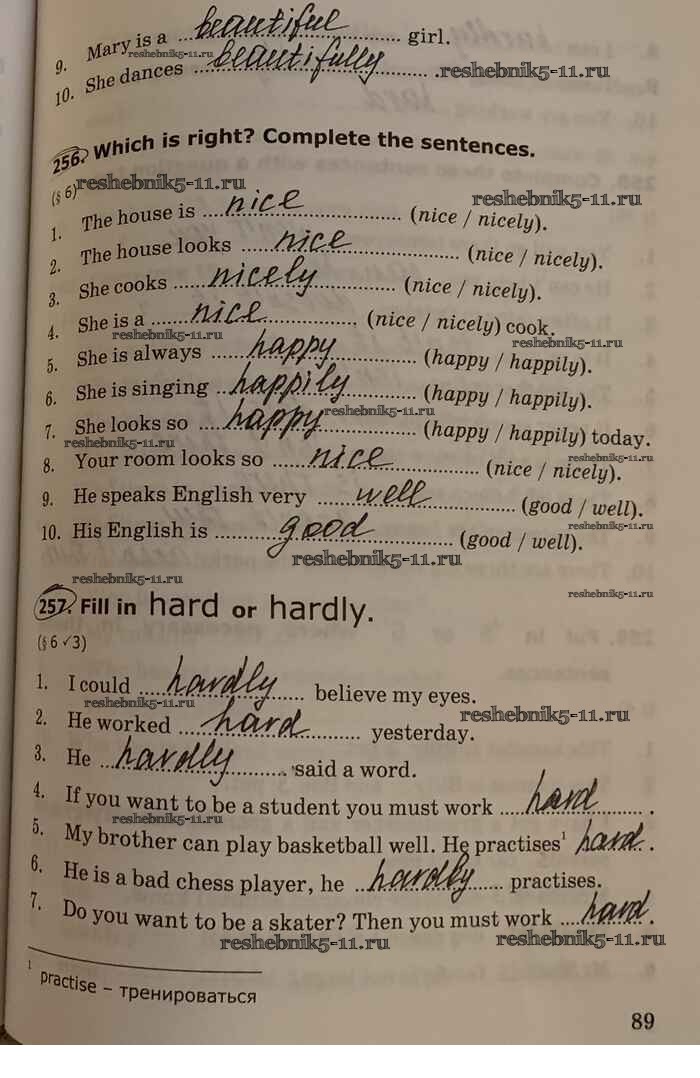 9. Mary is a ... beautiful ... girl.
reshebnik5-11.ru
10. She dances ... beautifully ... .reshebnik5-11.ru
256. Which is right? Complete the sentences.
(§ 6) reshebnik5-11.ru
reshebnik5-11.ru
1. The house is ... nice ... (nice / nicely).
2. The house looks ... nice ... (nice / nicely).
3. She cooks ... nicely ... (nice / nicely).
4. She is a ... nice ... (nice / nicely) cook.
reshebnik5-11.ru reshebnik5-11.ru
5. She is always ... happy ... (happy / happily).
6. She is singing ... happily ... (happy / happily).
reshebnik5-11.ru
7. She looks so ... happy ... (happy / happily) today.
reshebnik5-11.ru reshebnik5-11.ru
8. Your room looks so ... nice ... (nice / nicely).
9. He speaks English very ... well ... (good / well).
reshebnik5-11.ru
10. His English is ... good ... (good / well).
reshebnik5-11.ru
reshebnik5-11.ru reshebnik5-11.ru
257. Fill in hard or hardly.
(§ 6 ✓3)
1. I could ... hardly ... believe my eyes.
reshebnik5-11.ru reshebnik5-11.ru
2. He worked ... hard ... yesterday.
3. He ... hardly ... said a word.
4. If you want to be a student you must work ... hard ... .
reshebnik5-11.ru
5. My brother can play basketball well. He practises¹ hard .
6. He is a bad chess player, he ... hardly ... practises.
7. Do you want to be a skater? Then you must work ... hard .
reshebnik5-11.ru reshebnik5-11.ru
¹ practise – тренироваться
89